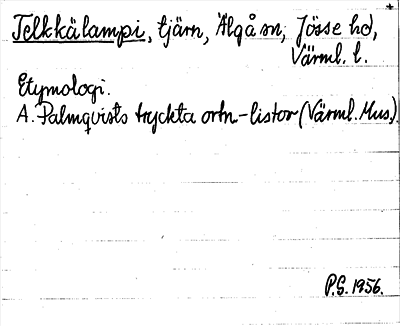 Telkkälampi, tjärn, Älgå sn, Jösse hd,
Värml. l.
Etymologi.
A. Palmqvists tryckta ortn.-listor (Värml. Mus.).
P.G. 1956.